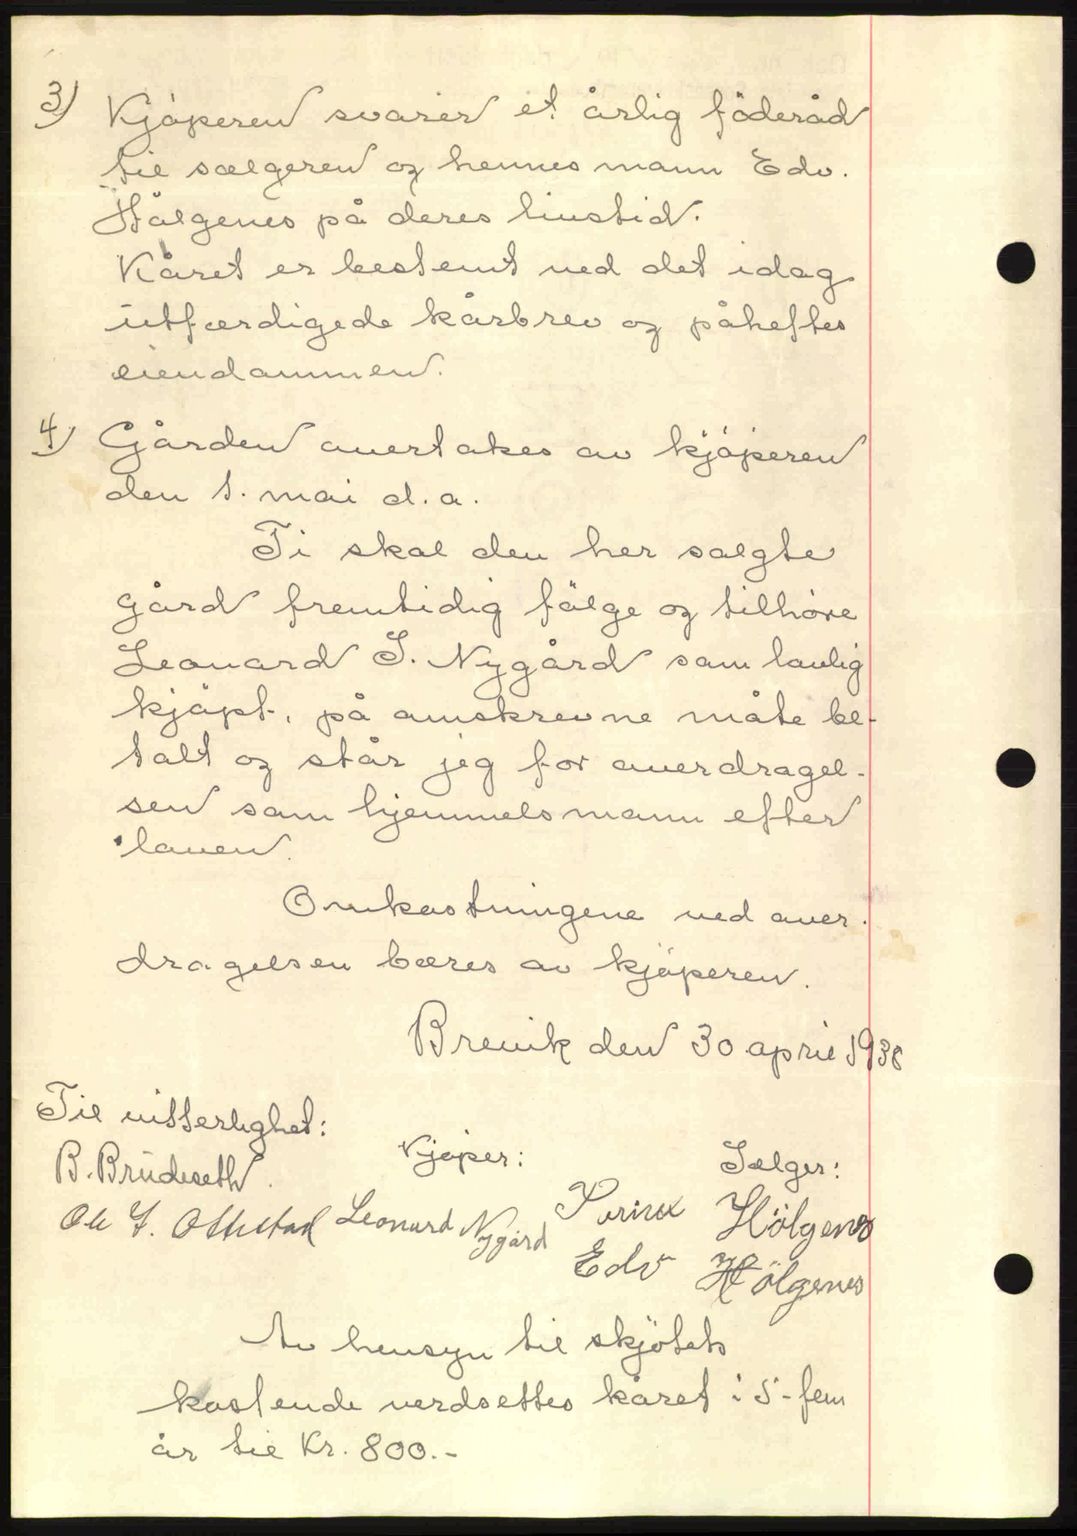 3) Kjöperen svarer et årlig föderåd
til sælgeren og hennes mann Edv.
Hölgenes på deres livstid.
Kåret er bestemt ved det idag
utfærdigede kårbrev og påheftes
eiendommen.
4) Gården overtakes av kjöperen
den 1. mai d.a.
Ti skal den her solgte
gård fremtidig fölge og tilhöre
Leonard J. Nygård som lovlig
kjöpt, på omskrevne måte be-
talt og står jeg for overdragel-
sen som hjemmelsmann efter
loven.
Omkostningene ved over-
dragelsen bæres av kjöperen.
Brevik den 30 april 1938
Til vitterlighet:
Kjöper: Sælger:
B. Brudeseth.
Leonard Nygård Hölgenes
Edv Hölgenes
Av hensyn til skjötets
kostende verdsettes kåret i 5-fem
år til Kr. 800.-